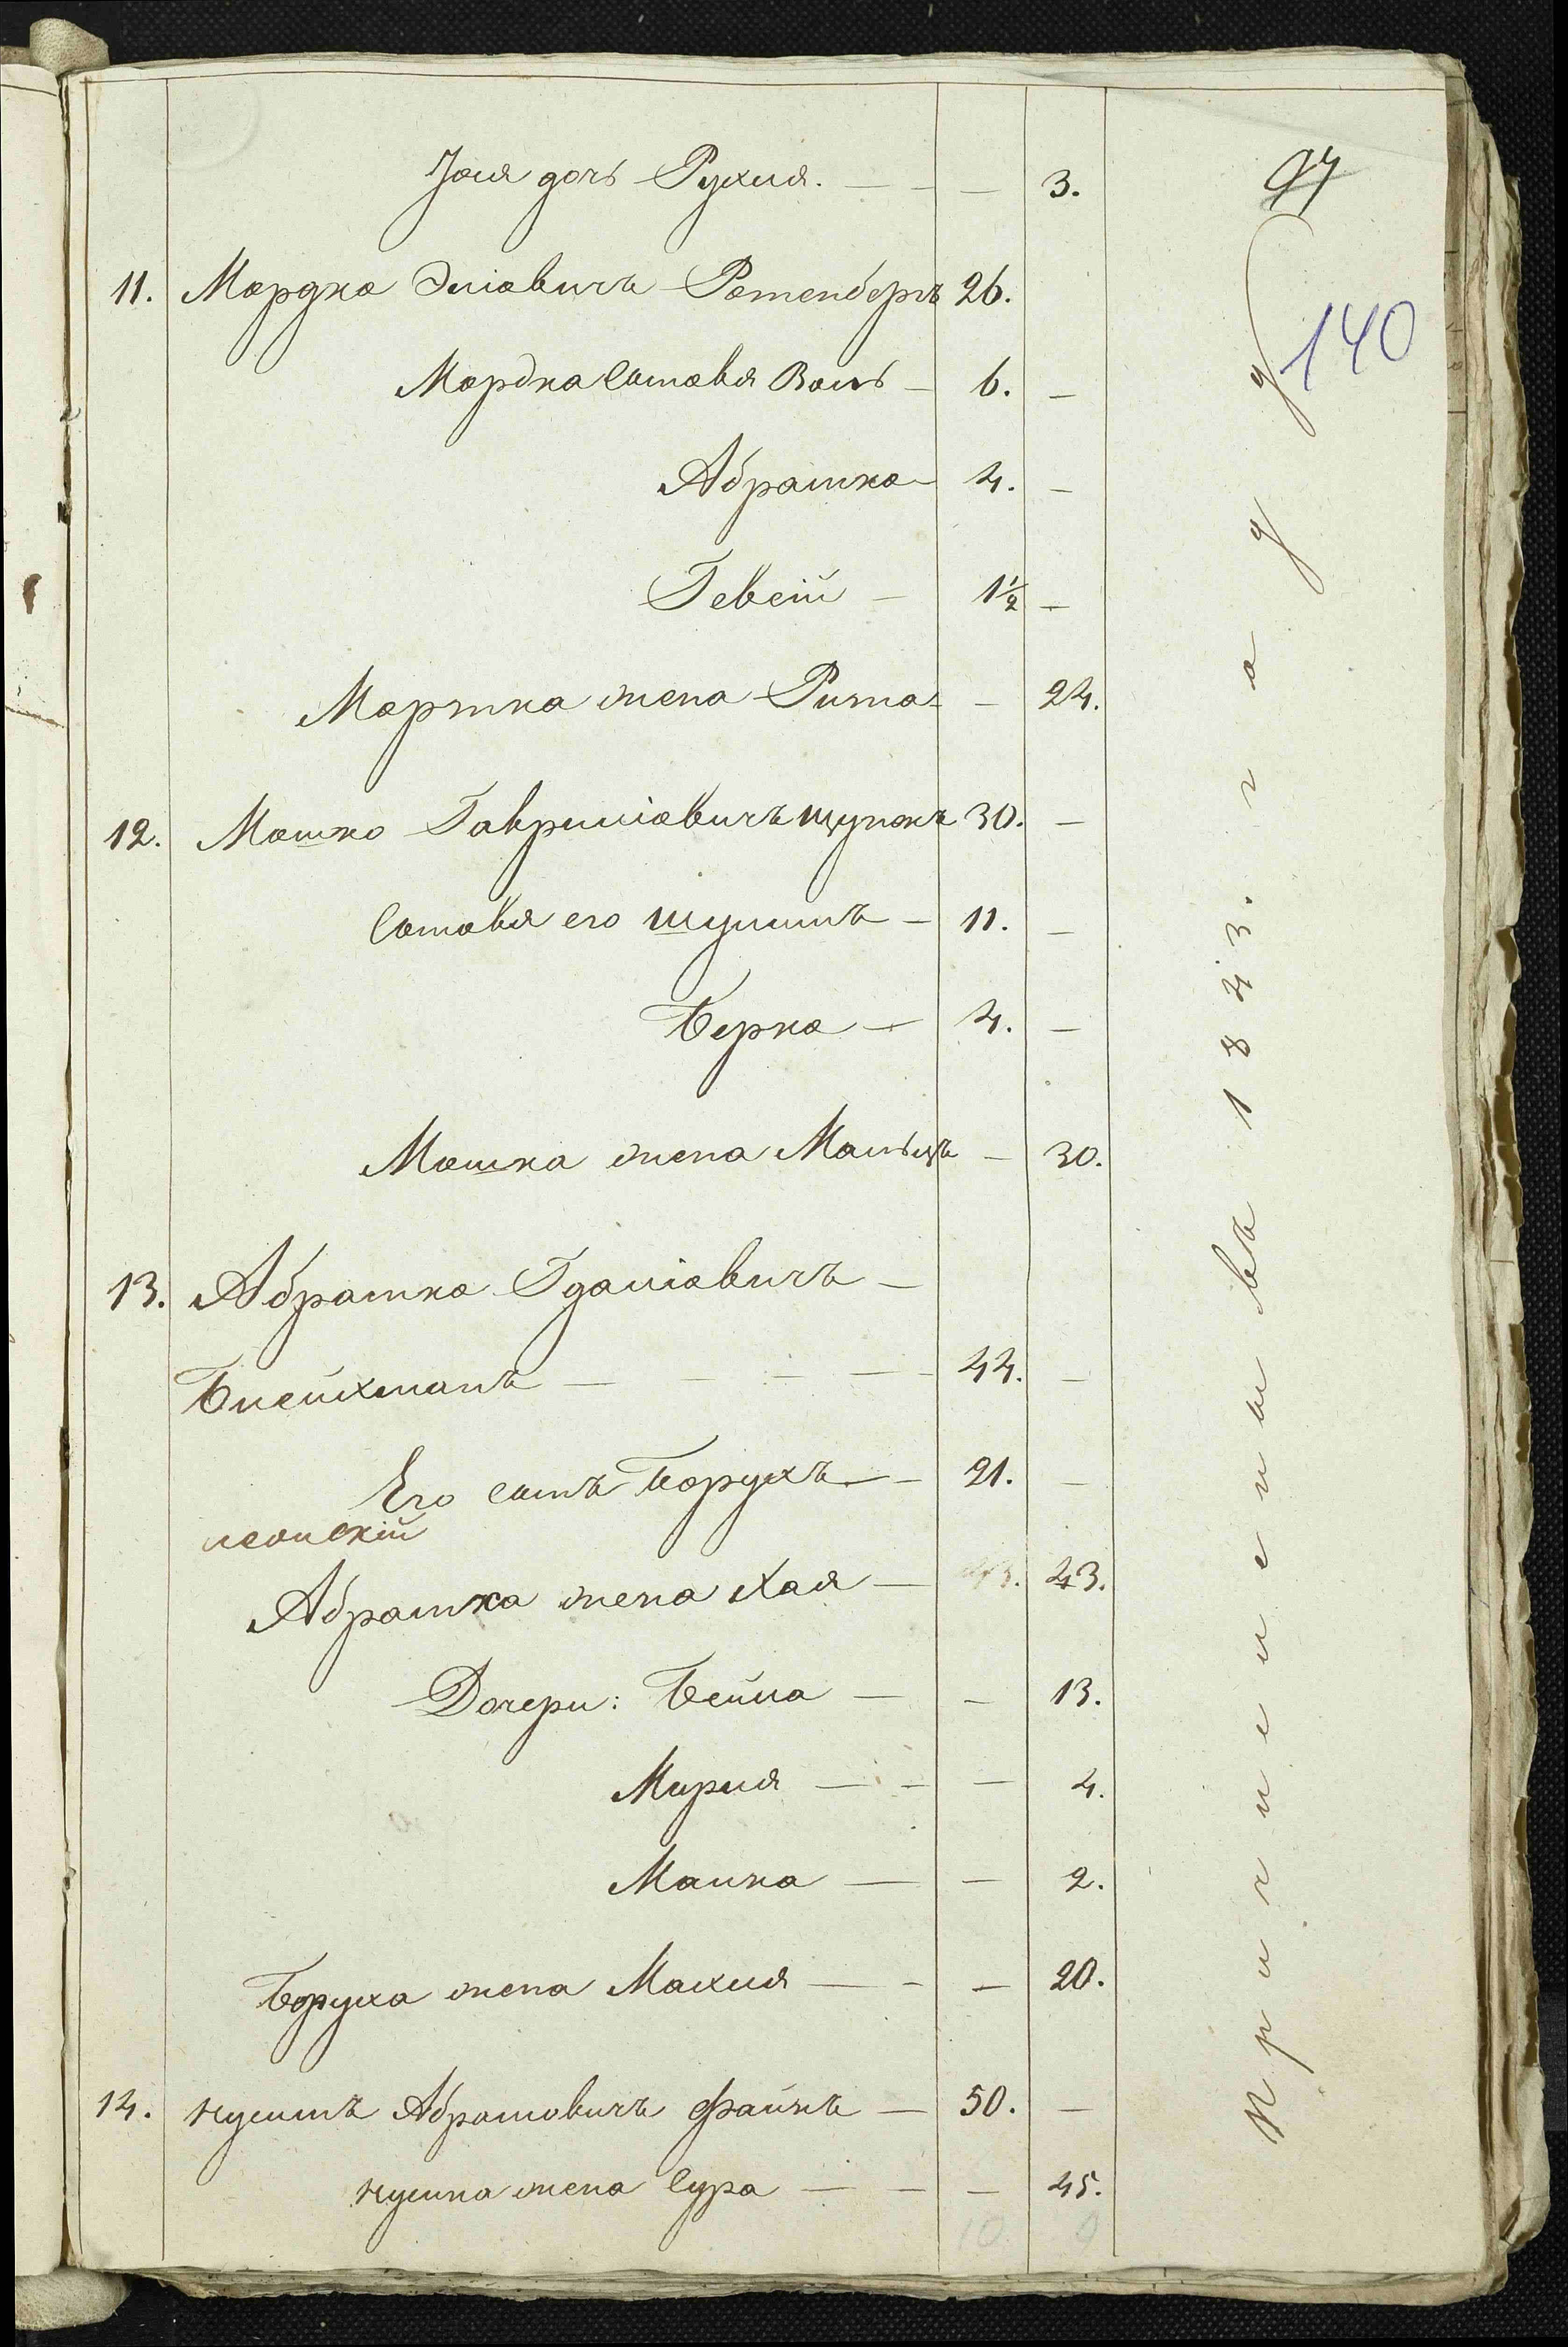 97
140
Іоля дочь Рухля. — — — 3.
11. Мордко Эліовичъ Ротенберъ 26.
Мордка сыновья Воль — 6. —
Абрамко — 4. —
Гевсій — 1½ —
Мортка жена Рита — — 24.
12. Мошко Гавриліовичъ 30. —
Сыновья его шулимъ — 11. —
Берко — 4. —
Мошка жена — 30.
13. Абрамко Гдаліовичъ —
Блейхманъ — — — — — 44. —
Его сынъ Борухъ — — 21. —
Абрамка жена Хая — 43. 43.
Дочери: Бейла — — 13.
Мирля — — — 4.
Малка — — 2.
Боруха жена Махля — — — 20.
14. нухимъ Абрамовичъ файнъ — 50. —
нухима жена Сура — — — 45.
10 9
Причислены въ 1843. году